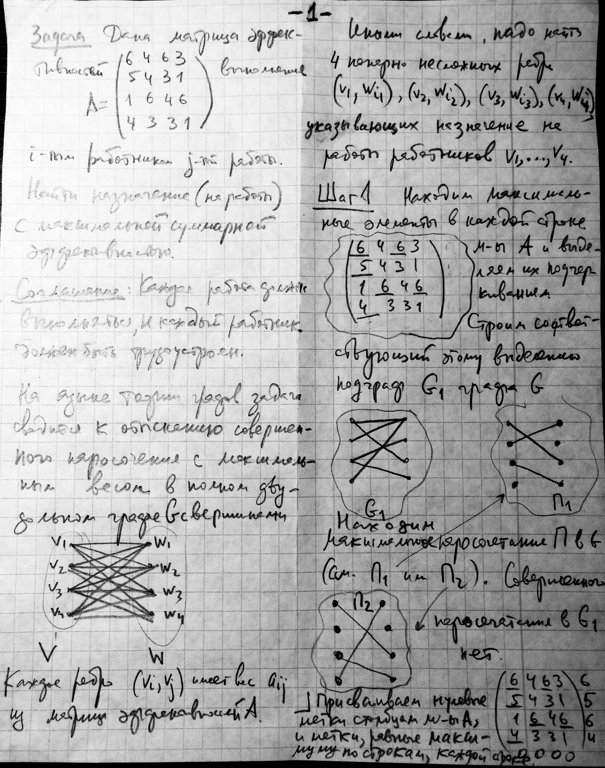 -1-
Задача Дана матрица эффек-
тивностей A= (6 4 6 3 выполнения
5 4 3 1
1 6 4 6
4 3 3 1)
i-тым работником j-той работы.
Найти назначение (на работы)
с максимальной суммарной
эффективностью.
Соглашение: Каждая работа должна
выполняться, и каждый работник
должен быть трудоустроен.
На языке теории графов задача
сводится к отысканию совершен-
ного паросочетания с максималь-
ным весом в полном дву-
дольном графе G с вершинами
V1 W1
V2 W2
V3 W3
V4 W4
V W
Каждое ребро (Vi, Vj) имеет вес aij
из матрицы эффективностей A.
Иными словами, надо найти
4 попарно несмежных ребра
(V1, Wi1), (V2, Wi2), (V3, Wi3), (V4, Wi4)
указывающих назначение на
работы работников V1, ..., V4.
Шаг 1 Находим максималь-
ные элементы в каждой строке
(6 4 6 3 м-цы A и выде-
5 4 3 1 ляем их подчер-
1 6 4 6 киванием
4 3 3 1) Строим соответ-
ствующий этому выделению
подграф G1 графа G
G1 П1
Находим
максимальное паросочетание П в G
(см. П1 или П2). Совершенного
П2 паросочетания в G1
нет.
Присваиваем нулевые (6 4 6 3) 6
метки столбцам м-цы A, 5 4 3 1 5
и метки, равные макси- 1 6 4 6 6
муму по строкам, каждой строке. 4 3 3 1 4
0 0 0 0